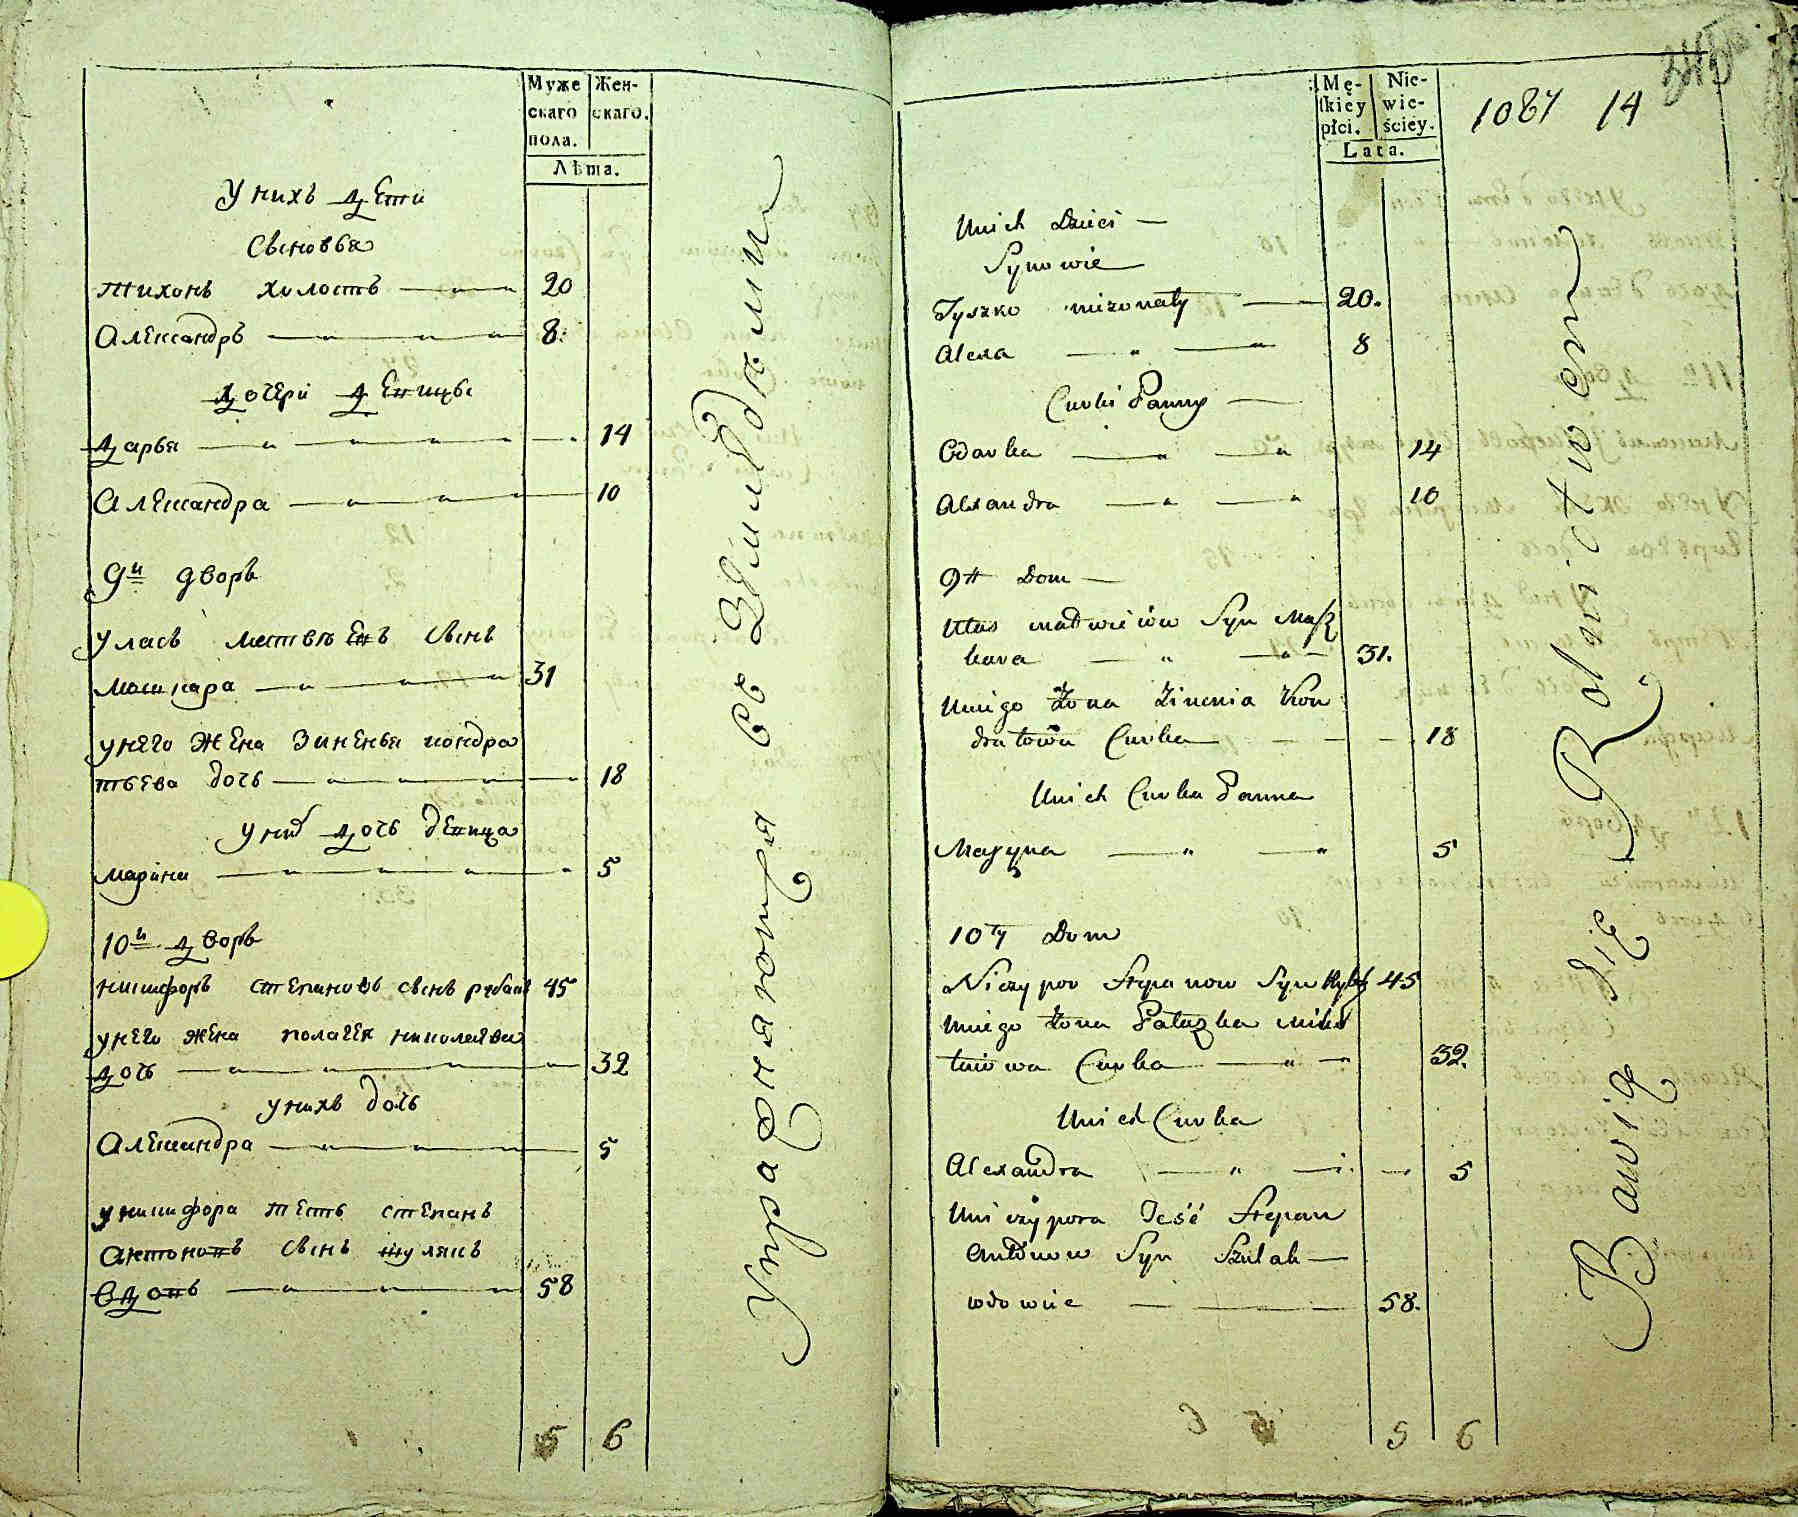 Муже
скаго
пола.
Жен-
скаго.
Лѣта.
У нихъ дети
Сыновья
Тихонъ холостъ 20
Александръ 8
дочери девицы
Дарья 14
Александра 10
9й дворъ
Уласъ Матвеевъ сынъ
Машкара 31
у него жена Зиневья кондра
тьева дочь 18
у них дочь девица
марина 5
10й дворъ
никифоръ степановъ сынъ рыбакъ 45
у него жена полагея николаева
дочь 32
у нихъ дочь
Александра 5
у никифора тесть степанъ
антоновъ сынъ шулякъ
вдовъ 58
5 6
Упражняются въ Земледелии
Mę-
ſkiey
płci.
Nie-
wie-
ściey.
Lata.
1087 14
Unich Dzieci
Synowie
Tyszko nizonaty 20.
Alexa 8
Curki Panny
Odarka 14
Alexandra 10
9ty Dom
Ułas Matwieiow Syn Masz
kara 31.
Uniego Żona Zinenia Kon
dratowa Curka 18
Unich Curka Panna
Maryna 5
10ty Dom
Niczypor Stepanow Syn Rybak 45
Uniego Żona Palazka Miko
łaiowa Curka 32.
Unich Curka
Alexandra 5
Uniczypora Teść Stepan
Antonow Syn Szulak
wdowiec 58.
5 6
Bawią się Rolnictwem